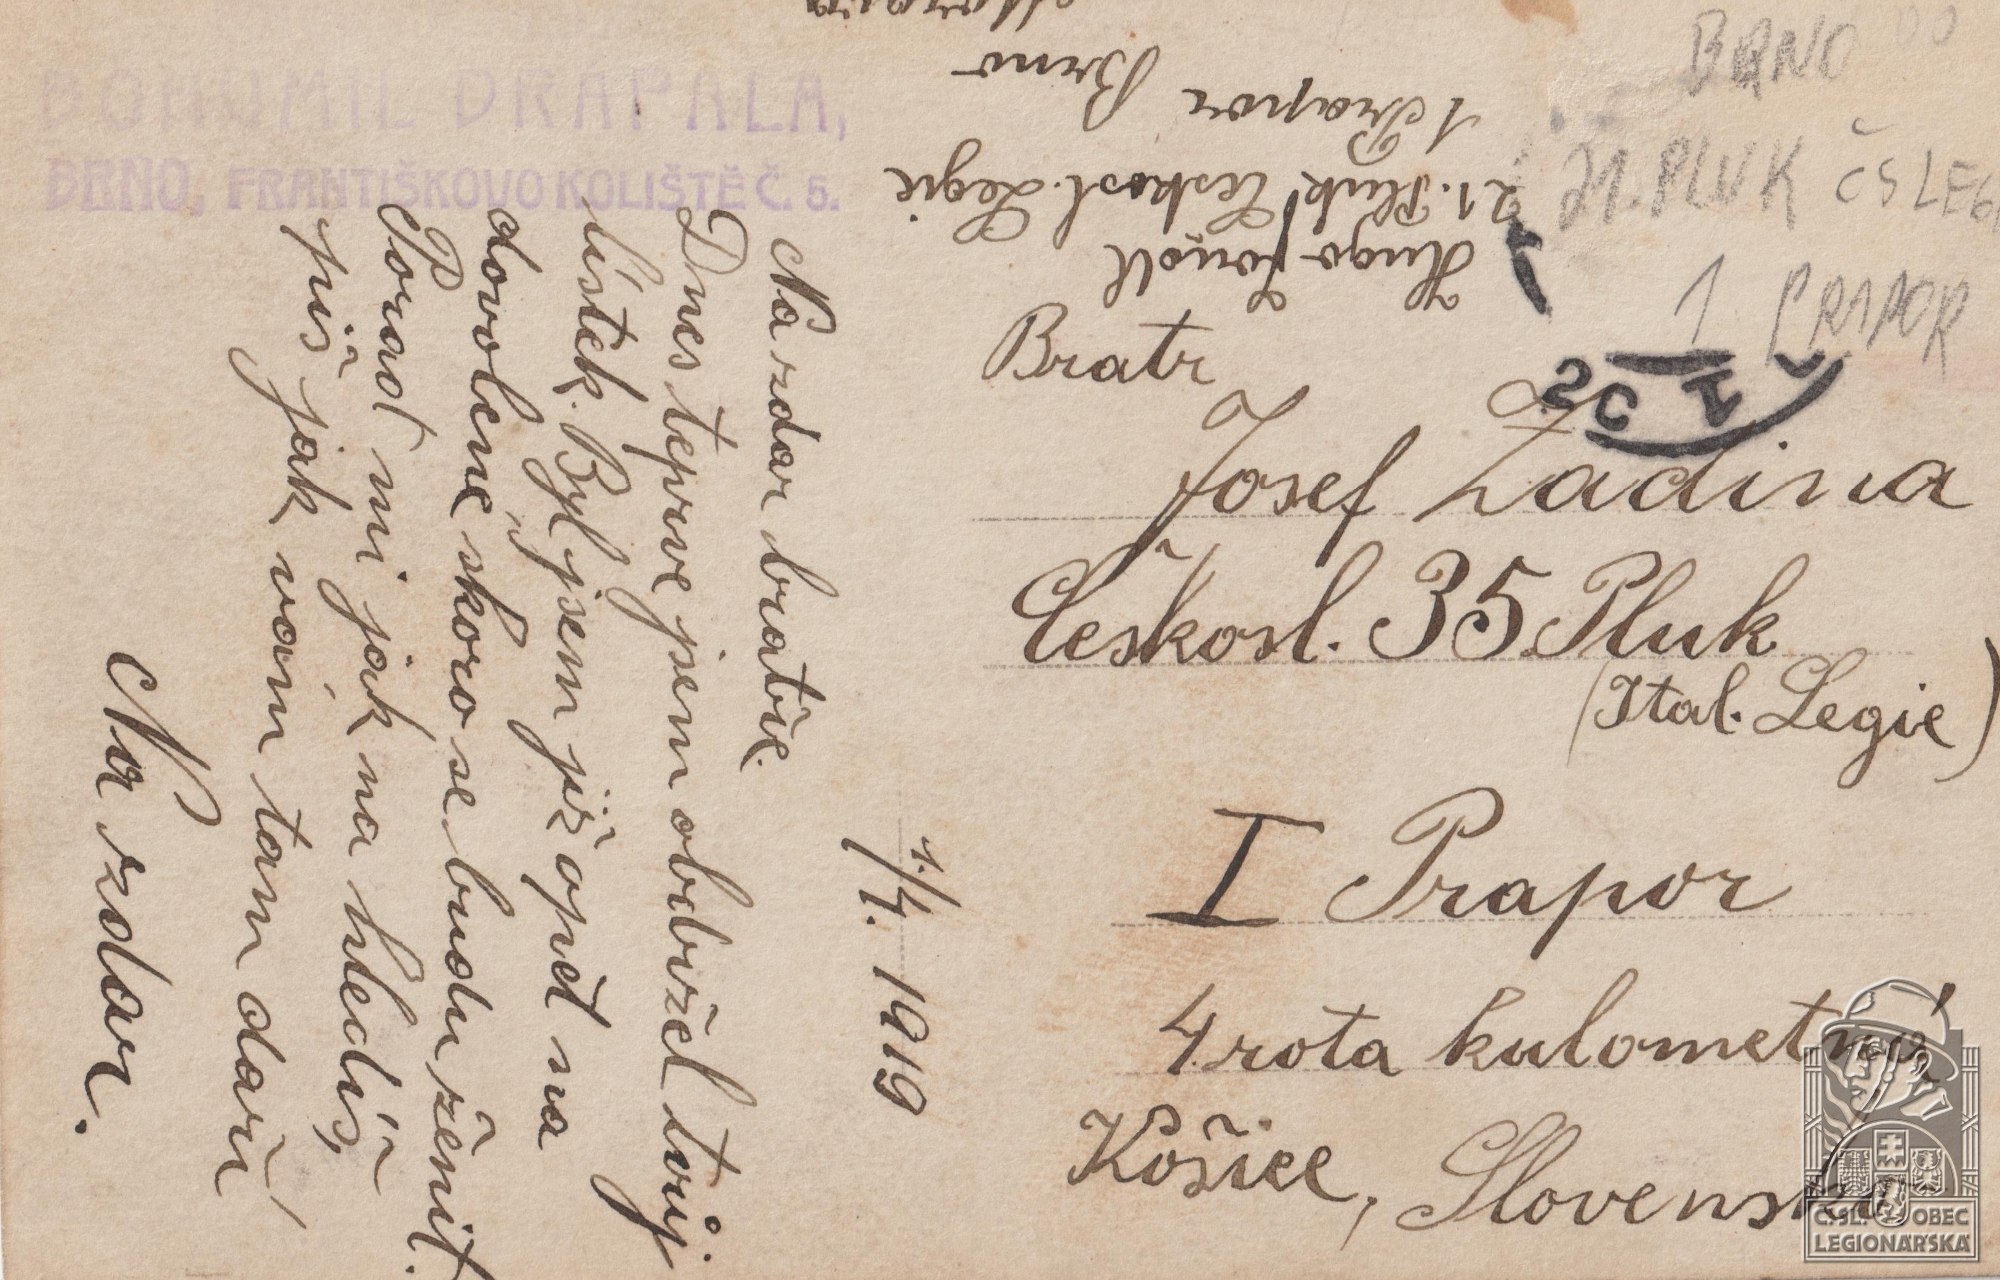 BOHUMIL DRAPALA,
BRNO, FRANTIŠKOVO KOLIŠTĚ Č. 5.
1./4. 1919
Na zdar bratře.
Dnes teprve jsem obdržel tvůj
lístek. Byl jsem již opět na
dovolené, skoro se budu ženit.
Porad mi jak na hledíš,
piš jak vám tam daří
Na zdar.
Hugo
21. Pluk českosl. Legie
1 Prapor Brno
Morava
BRNO
21. PLUK ČS LEGI
1 PRAPOR
Bratr
Josef Zadina
Českosl. 35 Pluk
(Ital. Legie)
I Prapor
4 rota kulometná
Košice, Slovensko
Č. SL. OBEC
LEGIONÁŘSKÁ